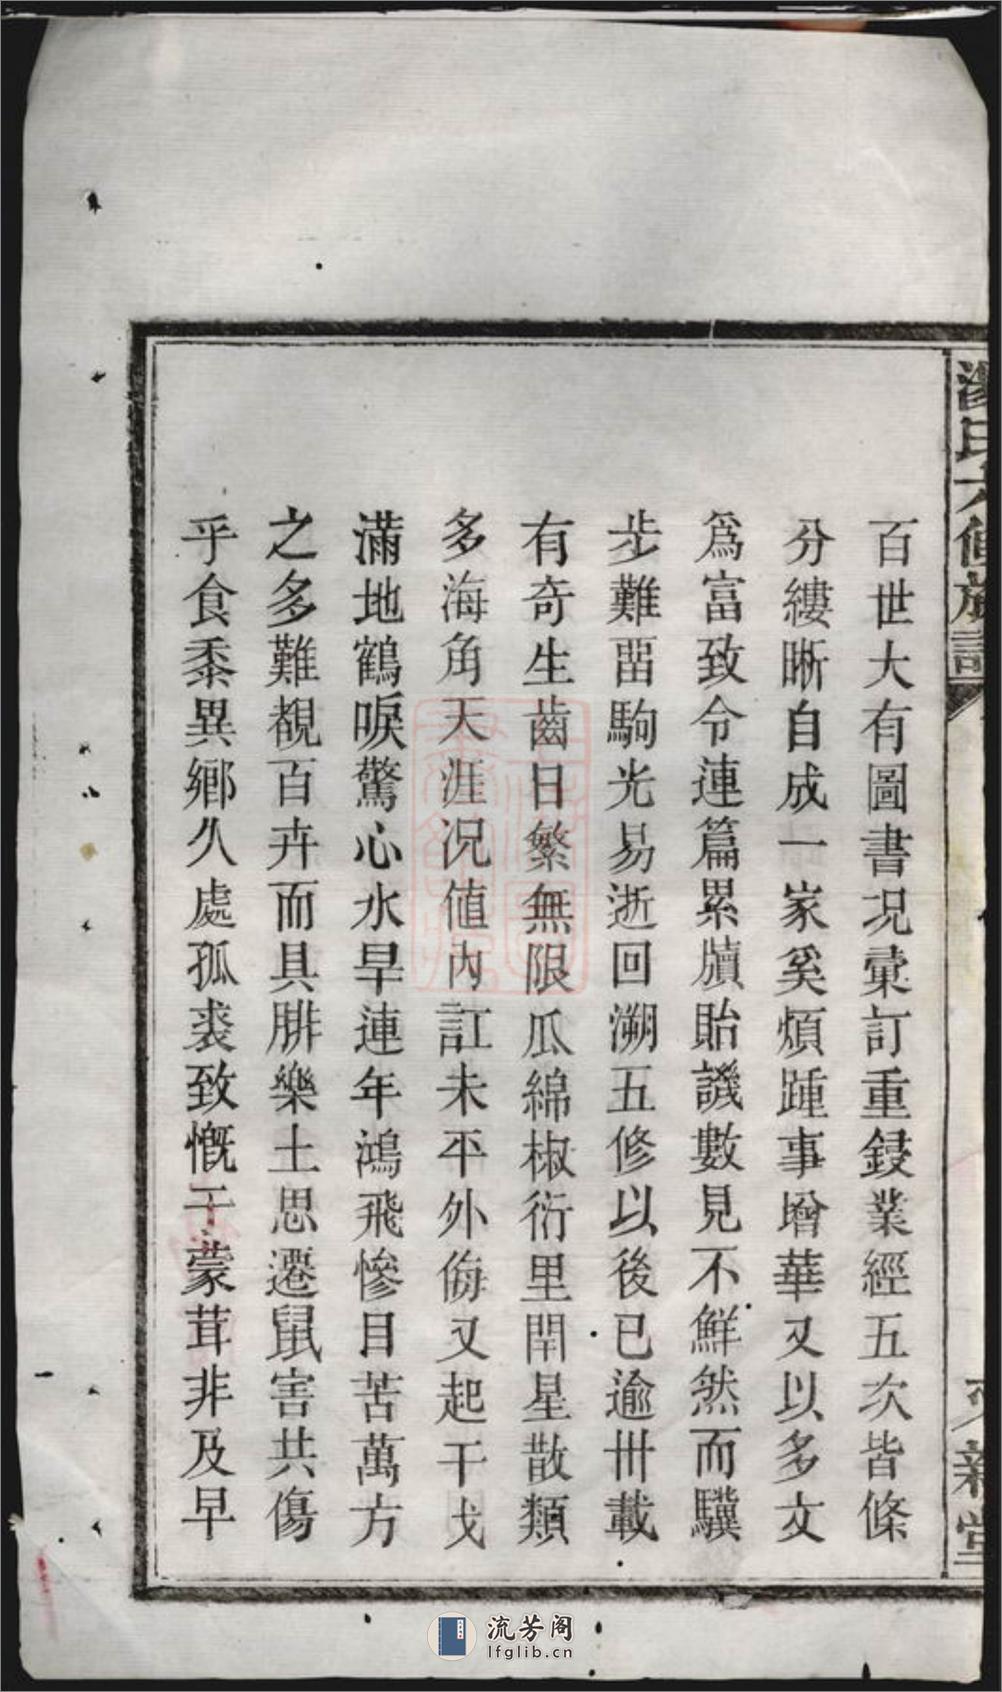 百世大有圖書况彙訂重鋟業經五次皆條
分縷晰自成一家奚煩踵事增華又以多文
爲富致令連篇累牘貽譏數見不鮮然而驥
步難畱駒光易逝回溯五修以後已逾卅載
有奇生齒日繁無限瓜綿椒衍里閈星散類
多海角天涯况値內訌未平外侮又起干戈
滿地鶴唳驚心水旱連年鴻飛慘目苦萬方
之多難覩百卉而具腓樂土思遷鼠害共傷
乎食黍異鄉久處狐裘致慨于蒙茸非及早
流芳阁
lfglib.cn